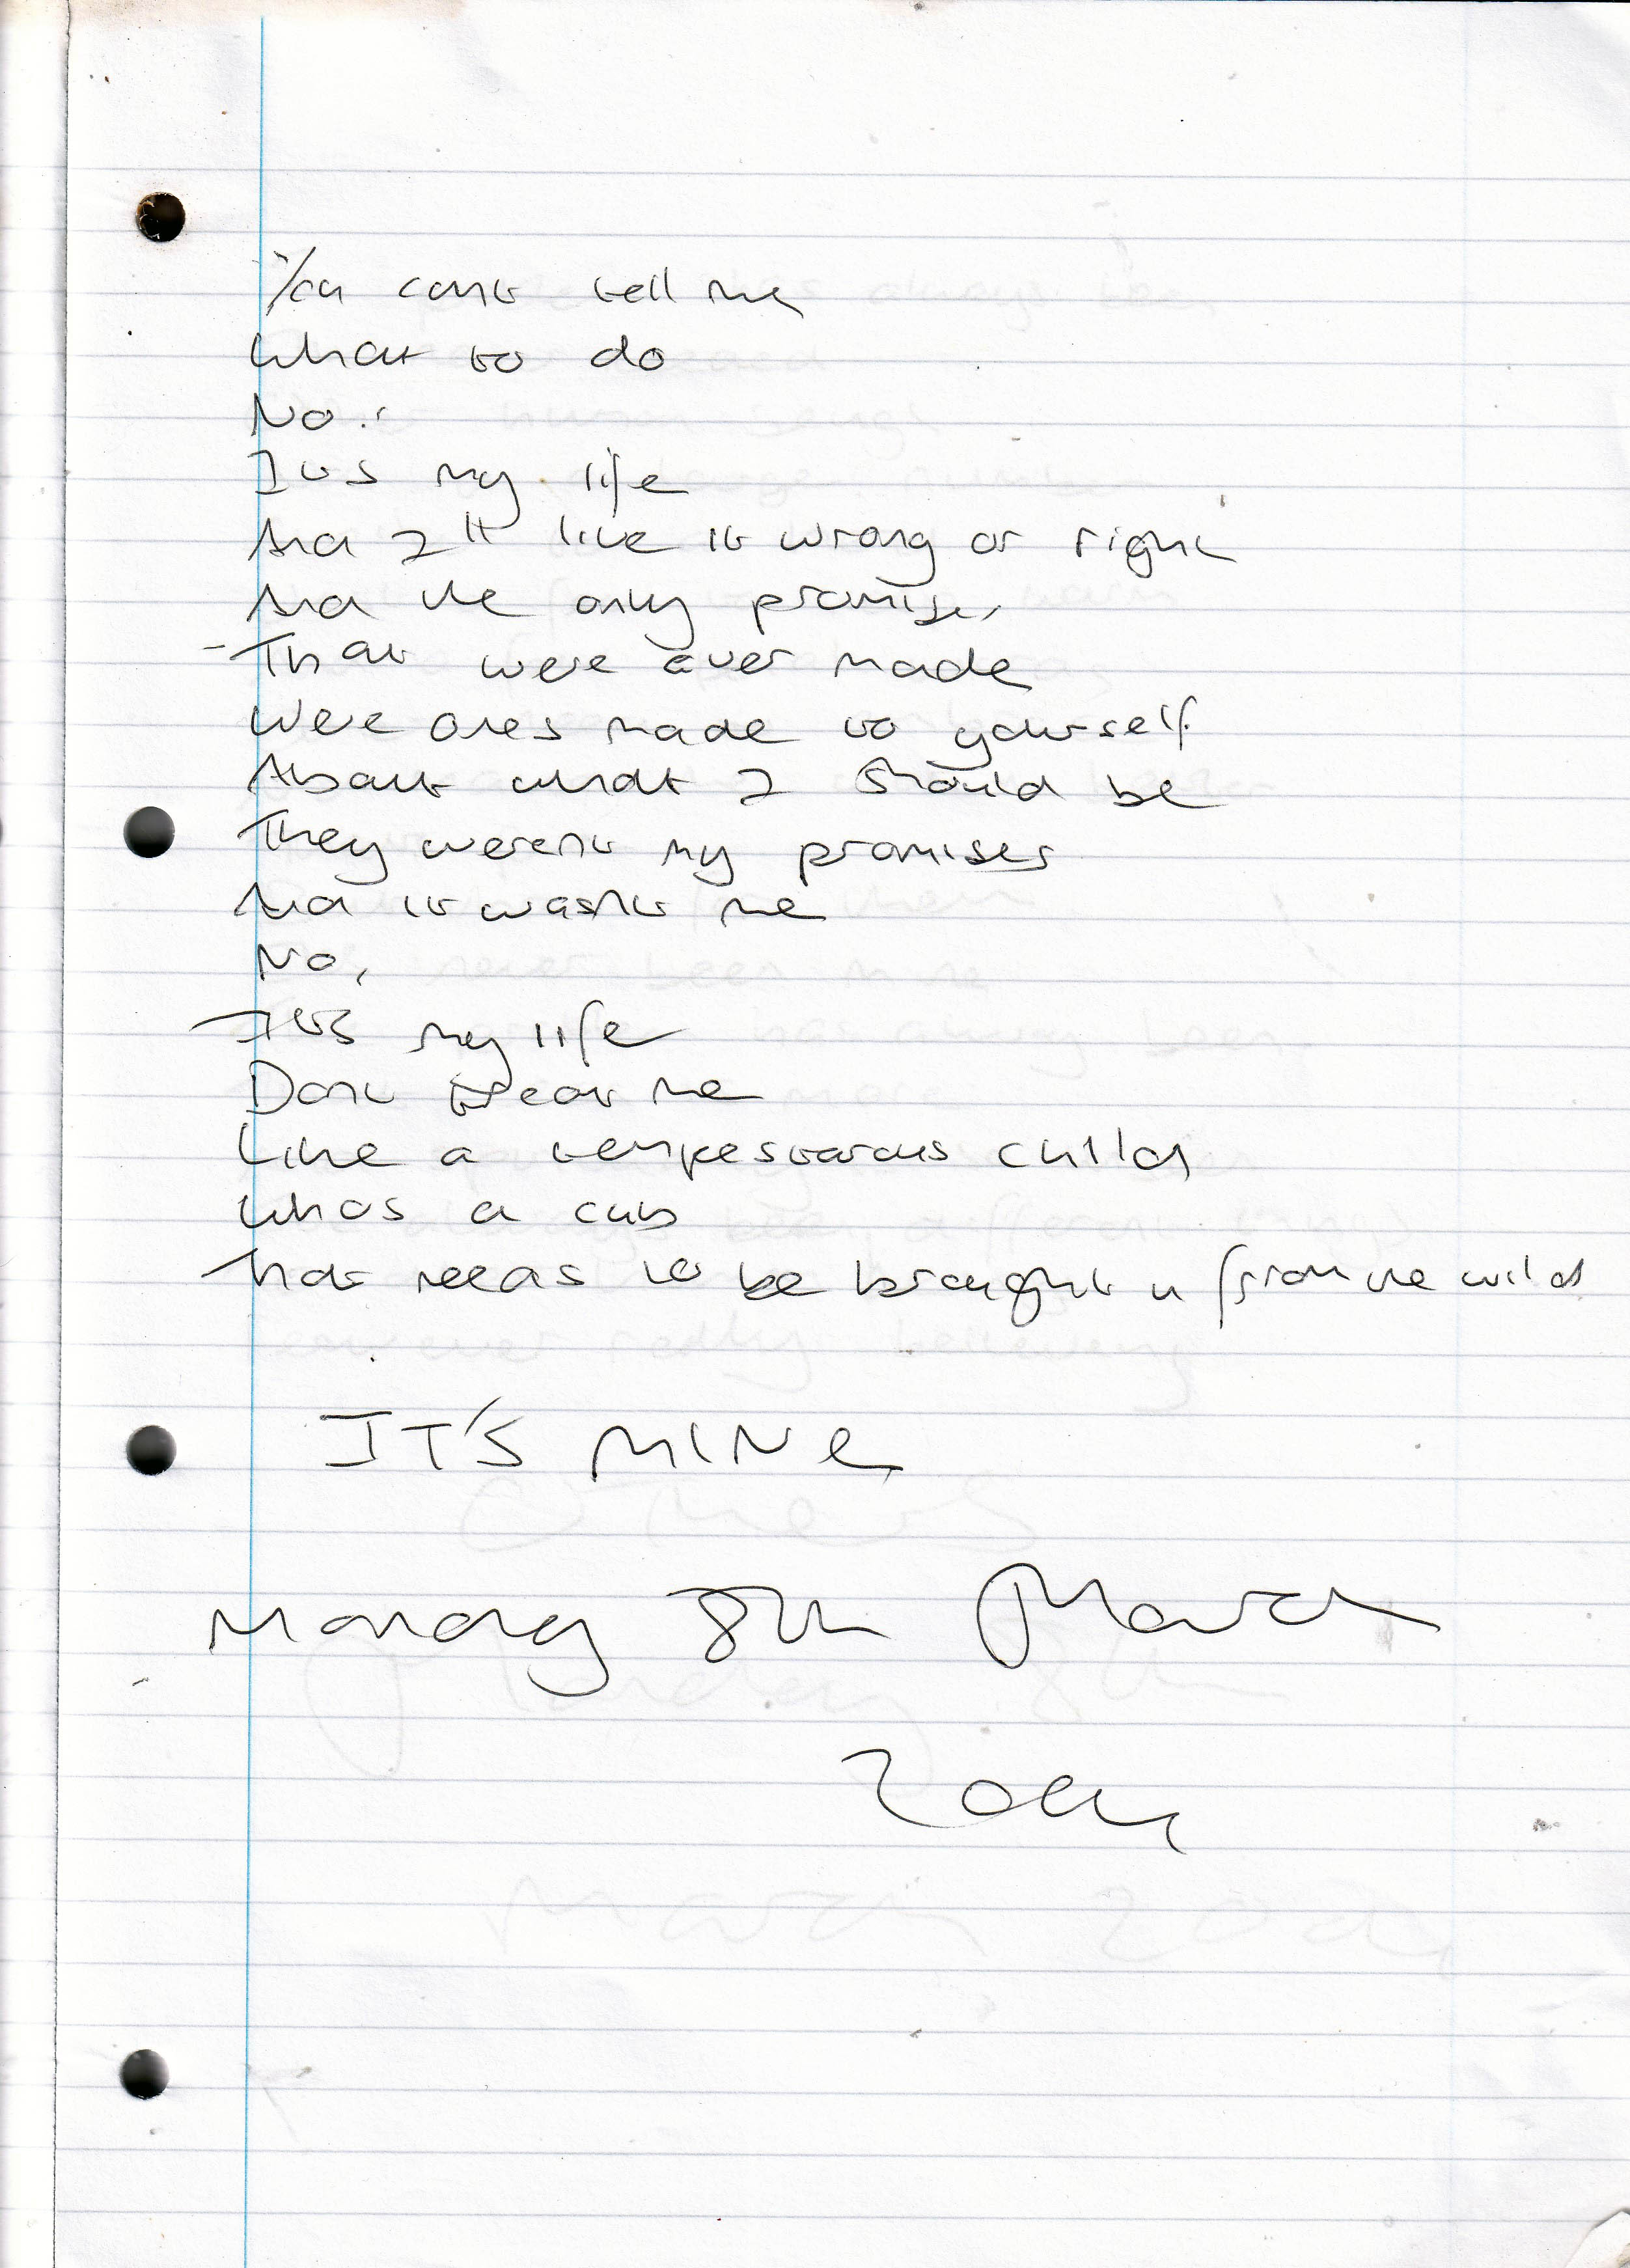 You cant tell me
What to do
No.
Its my life
And I'll live it wrong or right
And the only promises
That were ever made
Were ones made to yourself
About what I should be
They werent my promises
And it wasnt me
No,
Its my life
Dont treat me
Like a tempestuous child
Whos a cub
That needs to be brought in from the wild
IT'S MINE
Monday 8th March